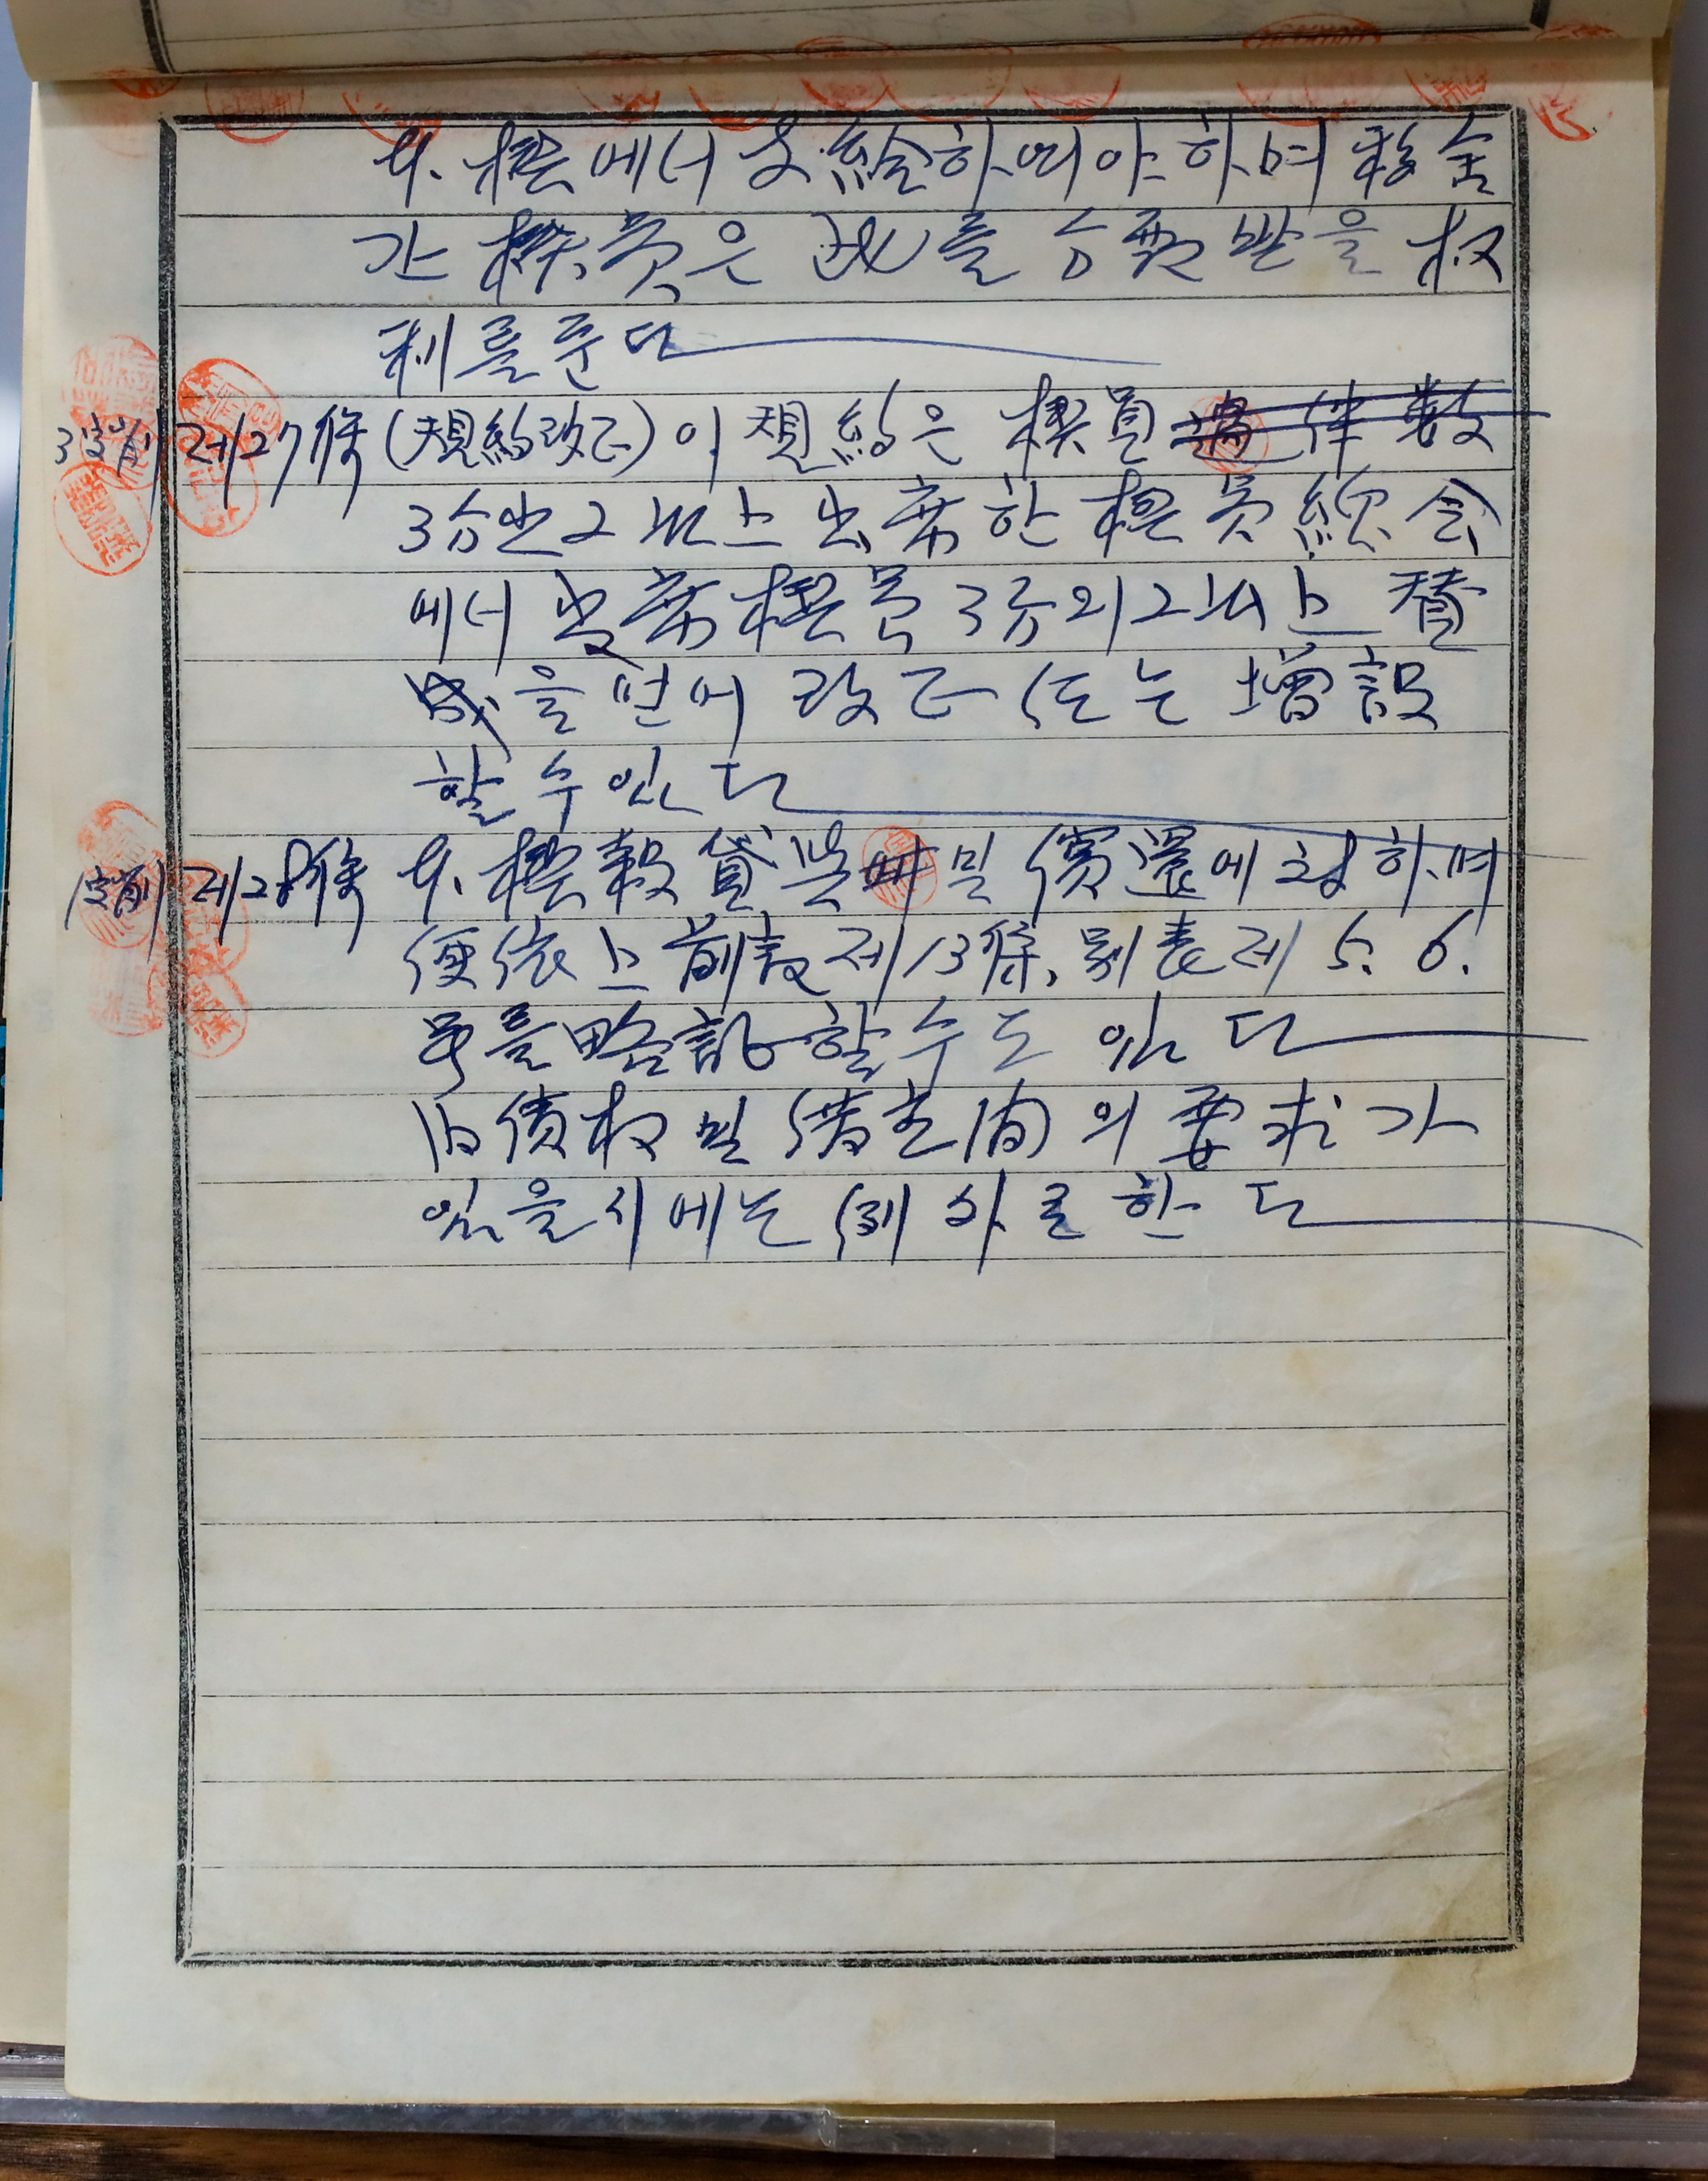 本 楔에서 支給하여야 하며 移舍
간 楔員은 此를 分配받을 权
利를 준다
3字削 제27條 (規約改正) 이 規約은 楔員
3分之2 以上 出席한 楔員 総会
에서 出席楔員 3分의 2 以上 賛
成을 얻어 改正 또는 增設
할 수 있다
1字削 제28條 本 楔穀 貸 및 償還에 対하며
便依上 前表 제13條, 別表 제 5. 6.
号를 略記할 수도 있다
旧債权 및 借主间의 要求가
있을시에는 例外로 한다